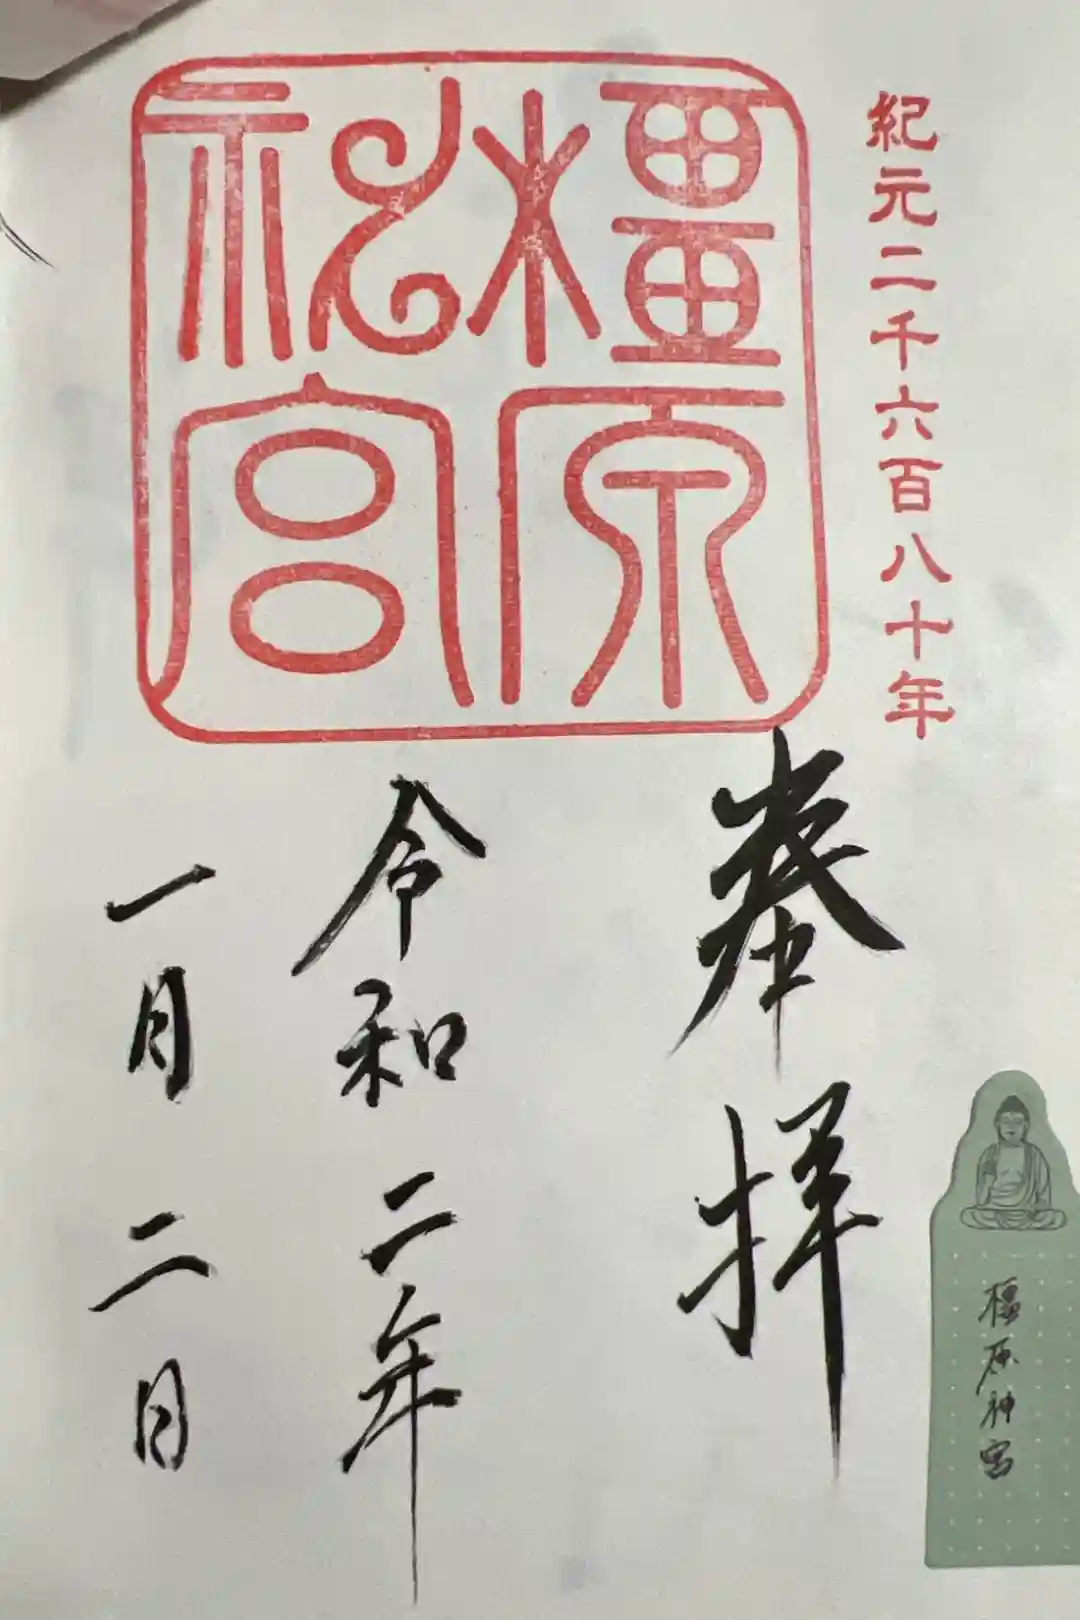 紀元二千六百八十年
橿原
神宮
奉拝
令和二年
一月二日
橿原神宮